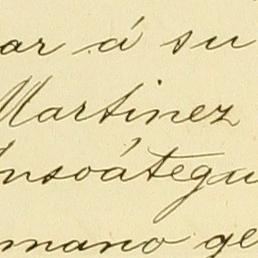 ar á su
Martinez
nsoátegu
mano ge